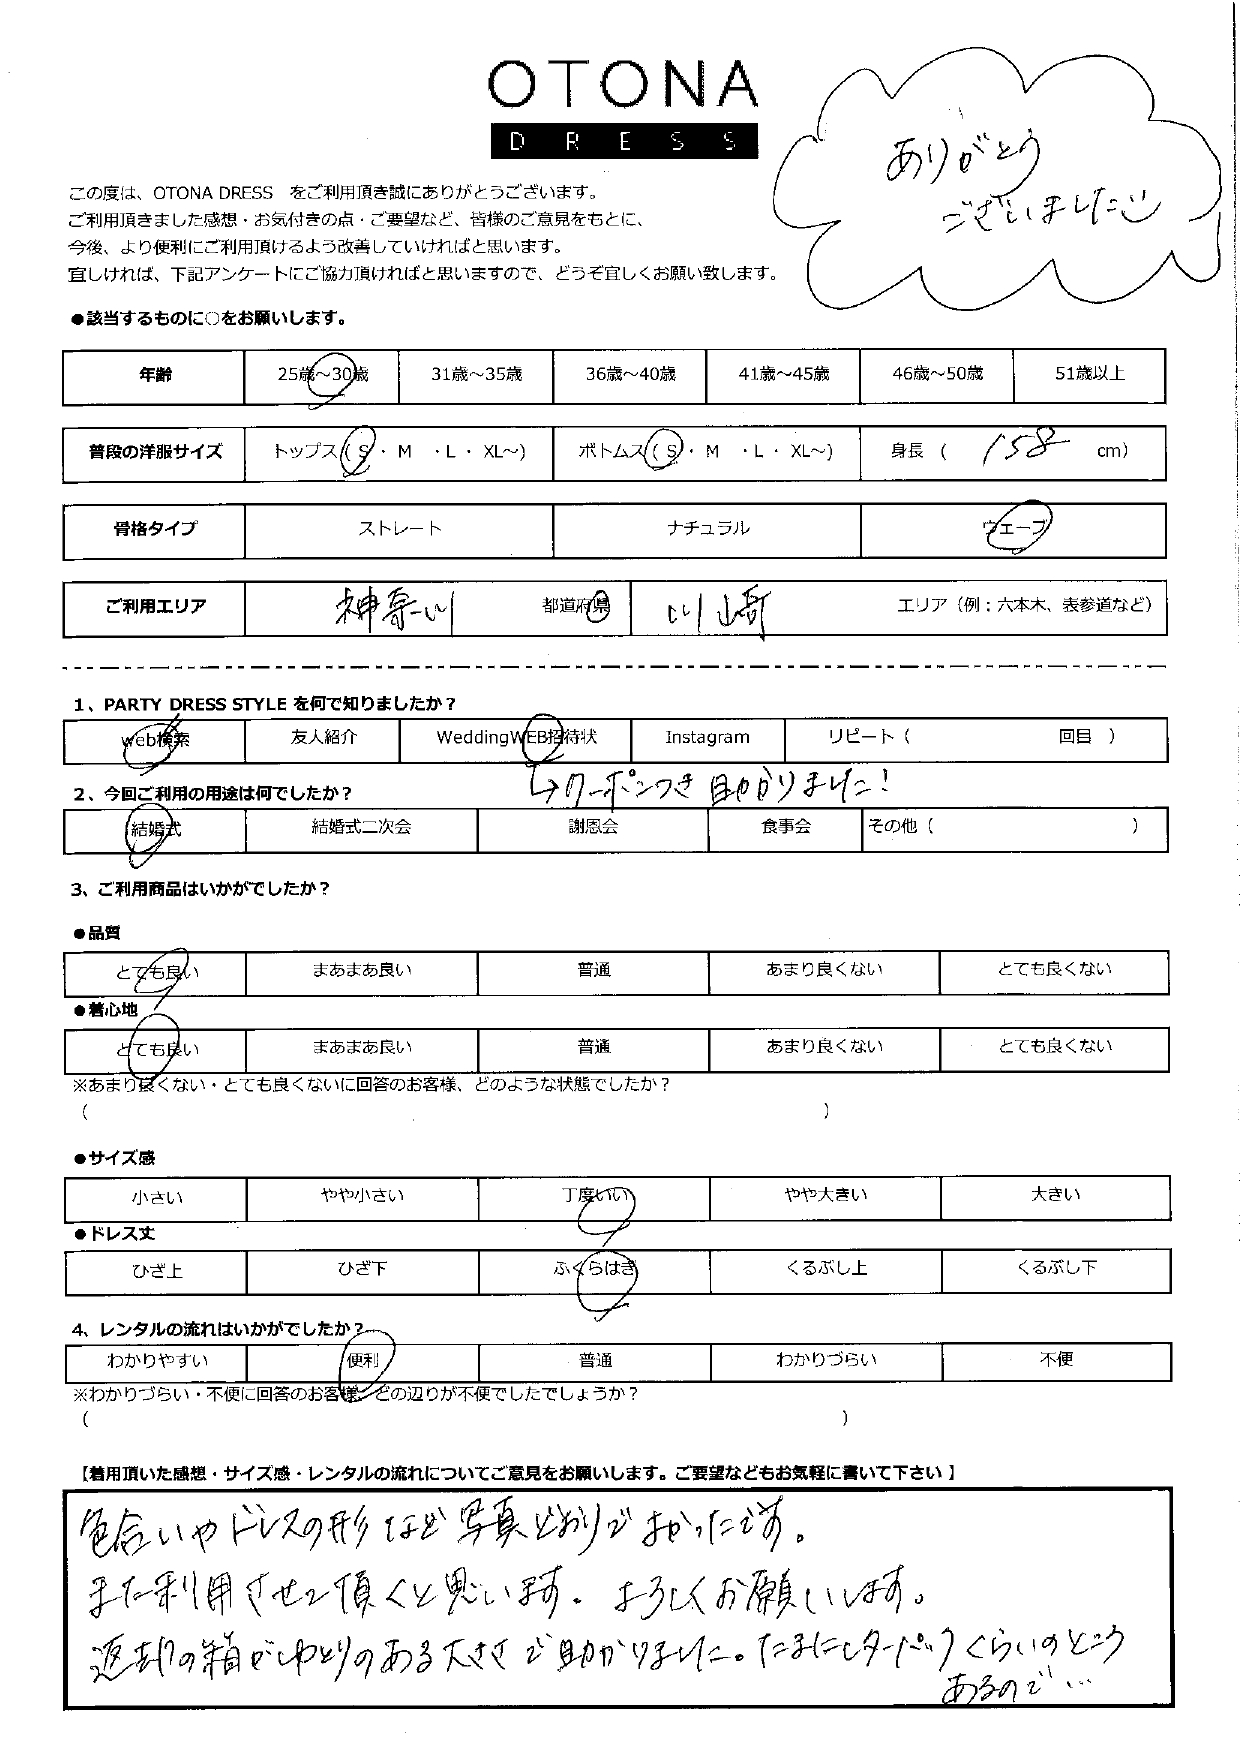 OTONA
DRESS
ありがとう
ございました
この度は、OTONA DRESS をご利用頂き誠にありがとうございます。
ご利用頂きました感想・お気付きの点・ご要望など、皆様のご意見をもとに、
今後、より便利にご利用頂けるよう改善していければと思います。
宜しければ、下記アンケートにご協力頂ければと思いますので、どうぞ宜しくお願い致します。
●該当するものに○をお願いします。
年齢 25歳～30歳 31歳～35歳 36歳～40歳 41歳～45歳 46歳～50歳 51歳以上
普段の洋服サイズ トップス( S ・ M ・L ・ XL～) ボトムス( S ・ M ・L ・ XL～) 身長 ( 158 cm)
骨格タイプ ストレート ナチュラル ウェーブ
ご利用エリア 神奈川 都道府県 川崎 エリア（例：六本木、表参道など）
1、PARTY DRESS STYLE を何で知りましたか？
web検索 友人紹介 WeddingWEB招待状 Instagram リピート（ 回目 ）
↳クーポンつき助かりました！
2、今回ご利用の用途は何でしたか？
結婚式 結婚式二次会 謝恩会 食事会 その他（ ）
3、ご利用商品はいかがでしたか？
●品質
とても良い まあまあ良い 普通 あまり良くない とても良くない
●着心地
とても良い まあまあ良い 普通 あまり良くない とても良くない
※あまり良くない・とても良くないに回答のお客様、どのような状態でしたか？
( )
●サイズ感
小さい やや小さい 丁度いい やや大きい 大きい
●ドレス丈
ひざ上 ひざ下 ふくらはぎ くるぶし上 くるぶし下
4、レンタルの流れはいかがでしたか？
わかりやすい 便利 普通 わかりづらい 不便
※わかりづらい・不便に回答のお客様、どの辺りが不便でしたでしょうか？
( )
【着用頂いた感想・サイズ感・レンタルの流れについてご意見をお願いします。ご要望などもお気軽に書いて下さい】
色合いやドレスの形など写真どおりでよかったです。
また利用させて頂くと思います。よろしくお願いします。
返却の箱がゆとりのある大きさで助かりました。たまにレターパックくらいのところ
あるので…